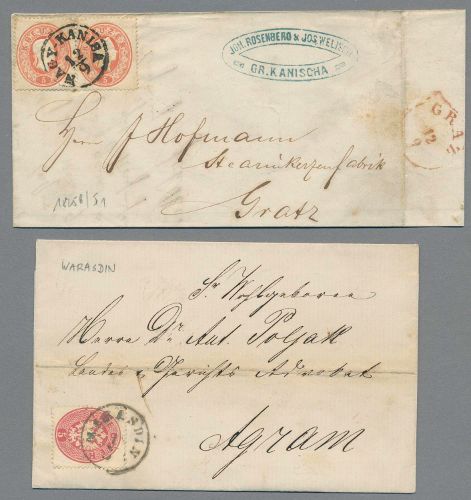 NAGY-KANISA
12/9
JOH. ROSENBERG & JOS. WELISCH
GR. KANISCHA
GRAZ
12
9
Herrn J Hofmann
Stearinkerzenfabrik
Gratz
WARASDIN
Sr Wohlgeboren
Herrn Dr. Ant. Poljak
Landes & Gerichts Advokat
Agram